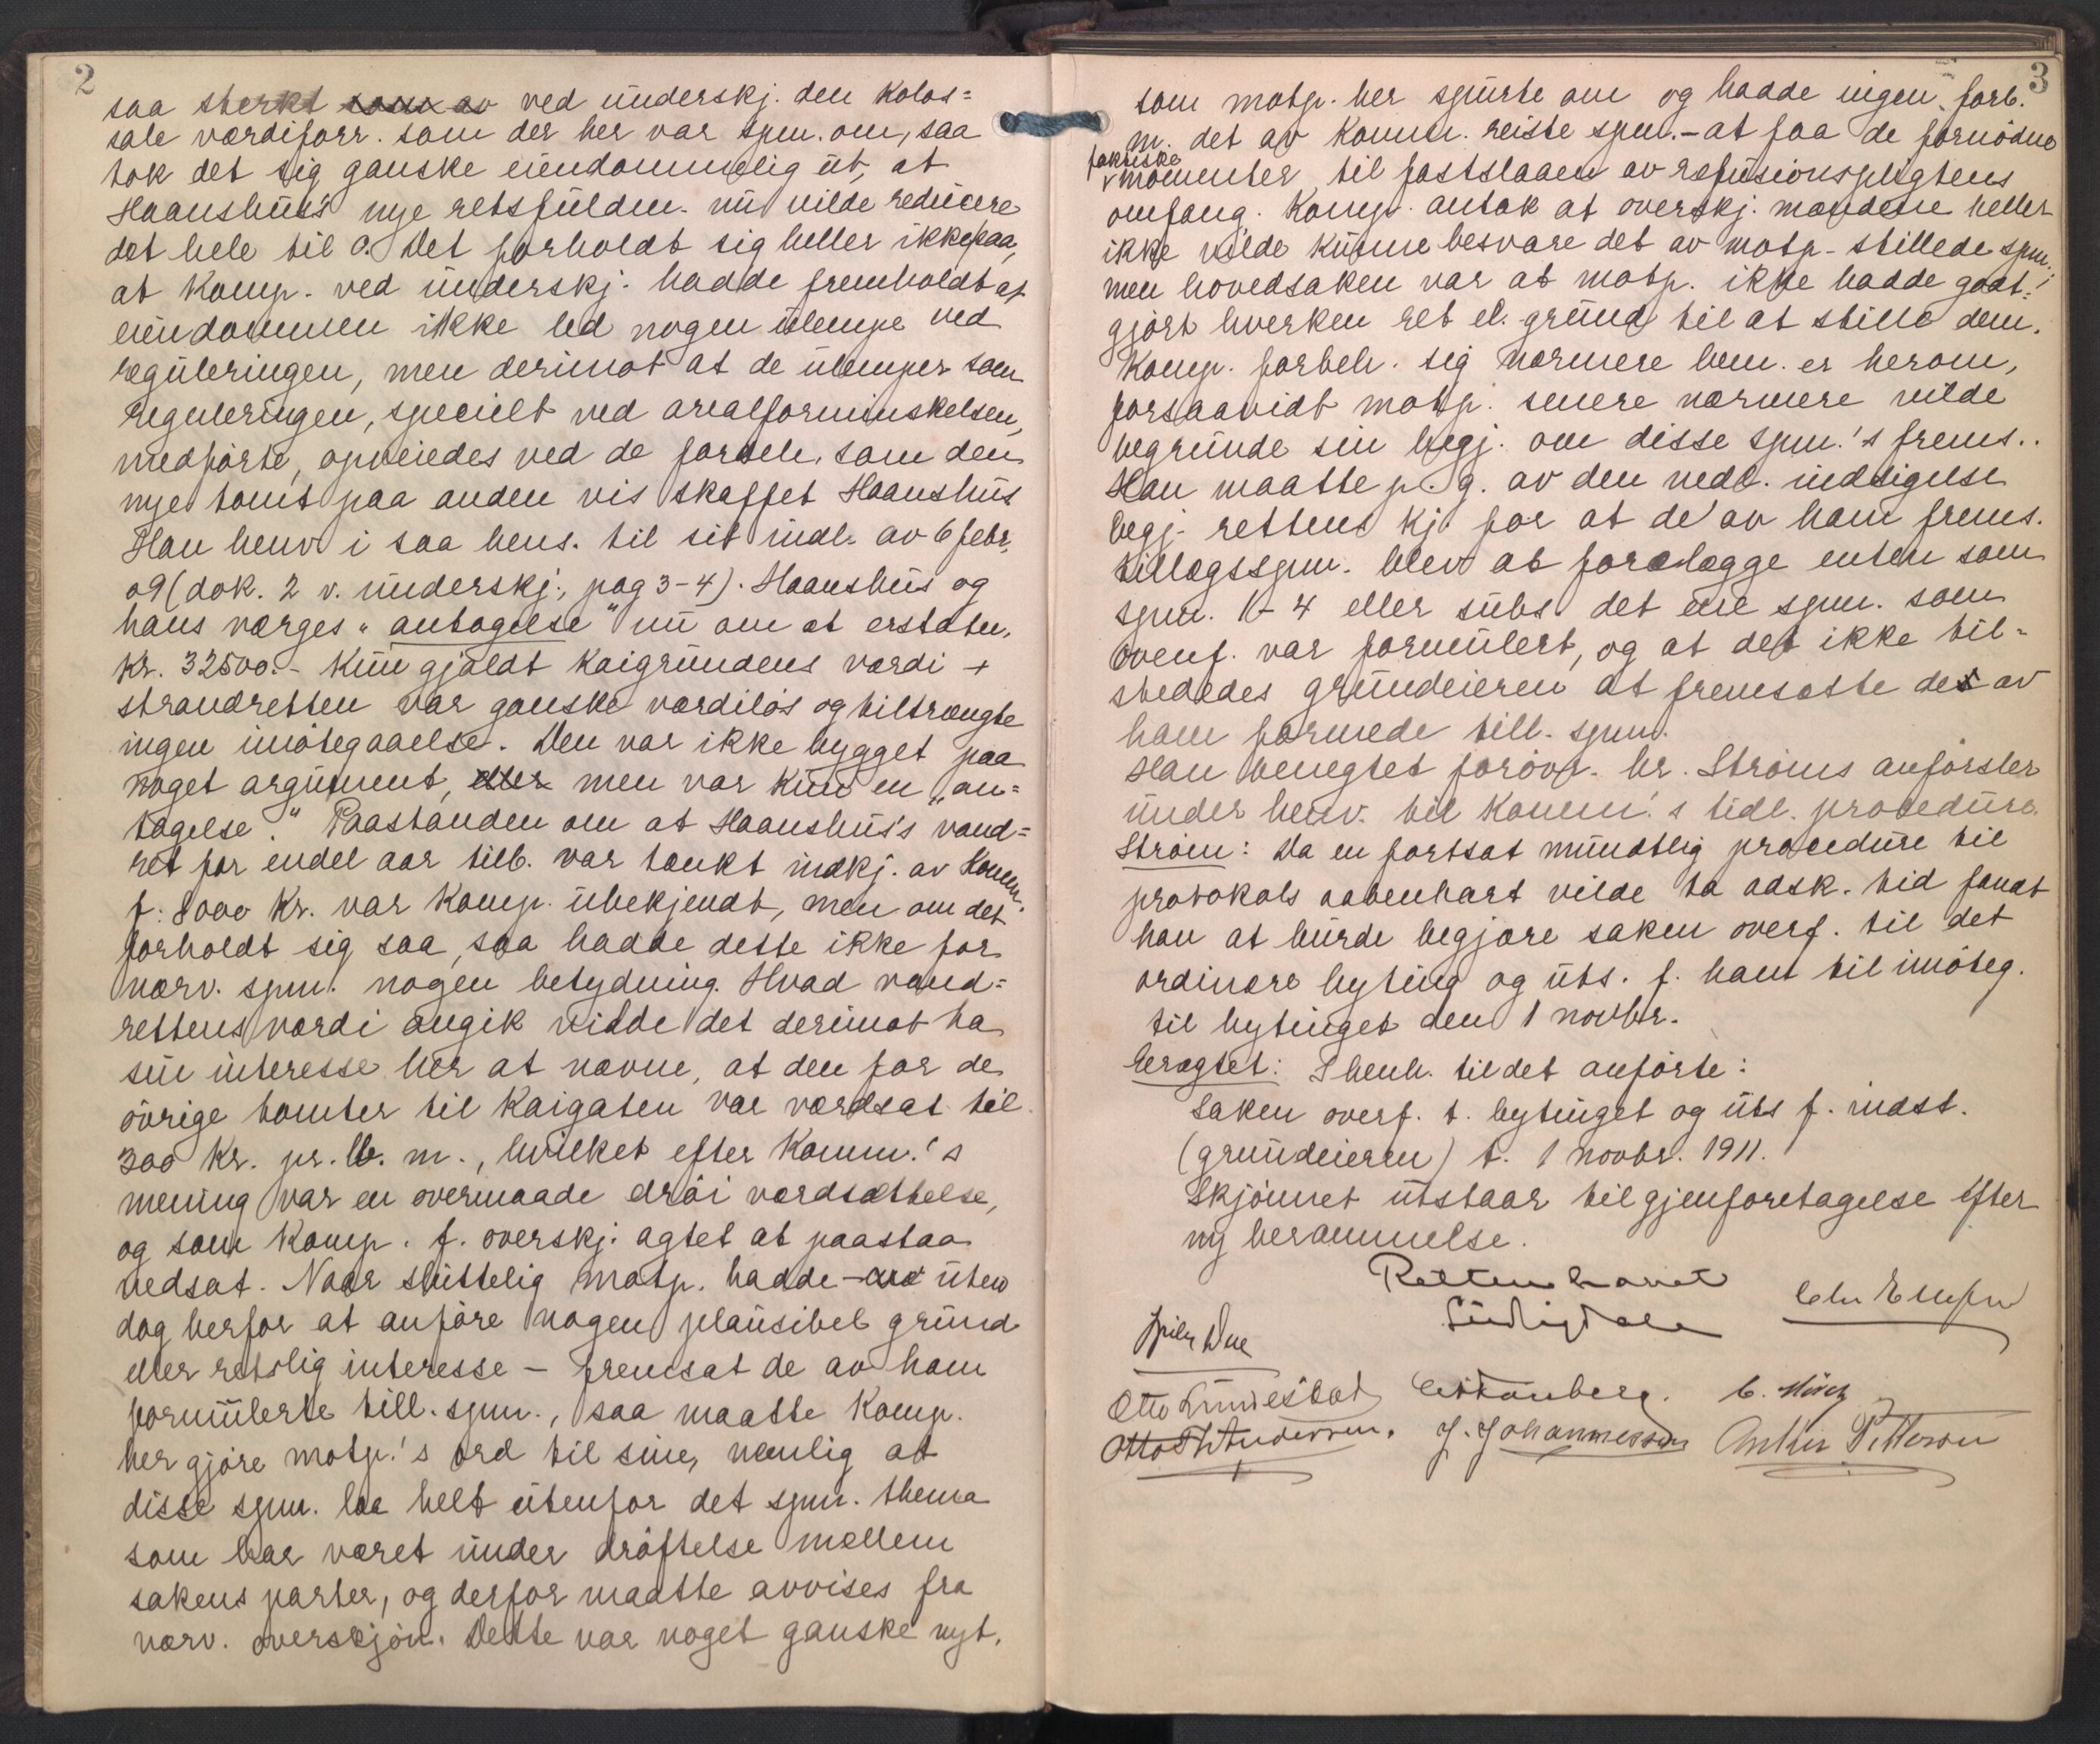 2
saa sterkt som av ved underskj. den kolos=
sale værdiforr. som der her var spm. om, saa
tok det sig ganske eiendommelig ut, at
Haanshus's nye retsfuldm. nu vilde reducere
det hele til 0. Det forholdt sig heller ikke saa,
at Komp. ved underskj. hadde fremholdt at
eiendommen ikke led nogen ulempe ved
reguleringen, men derimot at de ulemper som
reguleringen, specielt ved arealforminskelsen,
medførte, opveiedes ved de fordele, som den
nye tomt paa anden vis skaffet Haanshus
Han henv. i saa hens. til sit indl. av 6 febr.
09 (dok. 2 v. underskj., pag 3-4). Haanshus og
hans værges "antagelse" nu om at erstatn.
Kr. 32500.- kun gjaldt kaigrundens værdi +
strandretten var ganske værdiløs og tiltrængte
ingen imøtegaaelse. Den var ikke bygget paa
noget argument, eller men var kun en "an=
tagelse". Paastanden om at Haanshus's vand=
ret for endel aar tilb. var tænkt indkj. av Komm.
f. 8000 Kr. var Komp. ubekjendt, men om det
forholdt sig saa, saa hadde dette ikke for
nærv. spm. nogen betydning. Hvad vand=
rettens værdi angik vilde det derimot ha
sin interesse her at nævne, at den for de
øvrige tomter til Kaigaten var værdsat til
300 Kr. pr. lb. m., hvilket efter Komm.'s
mening var en overmaade drøi værdsættelse,
og som Komp. f. overskj. agtet at paastaa
nedsat. Naar sluttelig motp. hadde - uten
dog herfor at anføre nogen plausibel grund
eller retslig interesse - fremsat de av ham
formulerte till. spm., saa maatte Komp.
her gjøre motp.'s ord til sine, nemlig at
disse spm. laa helt utenfor det spm. thema
som har været under drøftelse mellem
sakens parter, og derfor maatte avvises fra
nærv. overskjøn. Dette var noget ganske nyt,
3
som motp. her spurte om og hadde ingen forb.
m. det av Komm. reiste spm. - at faa de fornødne
faktiske
momenter til fastslaaen av refusionspligtens
omfang. Komp. antok at overskj. mændene heller
ikke vilde kunne besvare det av motp. stillede spm.;
men hovedsaken var at motp. ikke hadde godt=
gjort hverken ret el. grund til at stille dem.
Komp. forbeh. sig nærmere bem. er herom,
forsaavidt motp. senere nærmere vilde
begrunde sin begj. om disse spm.'s frems..
Han maatte p. g. av den nedl. indsigelse
begj. rettens kj. for at de av ham frems.
tillægsspm. blev at forelægge enten som
spm. 1-4 eller subs. det ene spm. som
ovenf. var formulert, og at det ikke til=
stededes grundeieren at fremsætte de av
ham formede till. spm.
Han benegtet forøvr. hr. Strøms anførsler
under henv. til Komm.'s tidl. procedure.
Strøm: Da en fortsat mundtlig procedure til
protokols aabenbart vilde ta adsk. tid fandt
han at burde begjære saken overf. til det
ordinære byting og uts. f. ham til imøteg.
til bytinget den 1 novbr.
Eragtet: I henh. til det anførte:
Saken overf. t. bytinget og uts f. indst.
(grundeieren) t. 1 novbr. 1911.
Skjønnet utstaar til gjenforetagelse efter
ny berammelse.
Retten hævet
Otto Lundestad
Otto Th Andersen. J. Johannessen